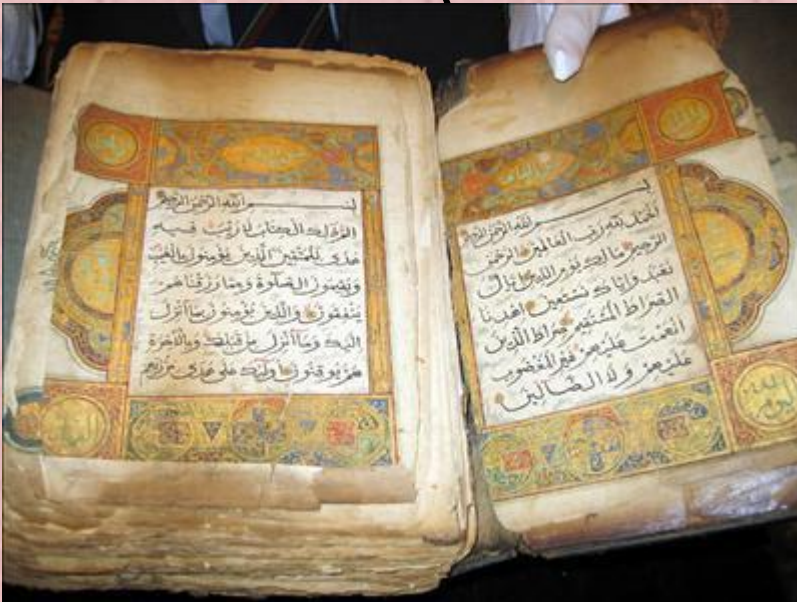 بسم الله الرحمن الرحيم
الحمد لله رب العالمين الرحمن
الرحيم مالك يوم الدين اياك
نعبد واياك نستعين اهدنا
الصراط المستقيم صراط الذين
انعمت عليهم غير المغضوب
عليهم ولا الضالين
بسم الله الرحمن الرحيم
الم ذلك الكتاب لا ريب فيه
هدى للمتقين الذين يؤمنون بالغيب
ويقيمون الصلوة ومما رزقناهم
ينفقون والذين يؤمنون بما أنزل
اليك وما أنزل من قبلك وبالآخرة
هم يوقنون اوليك على هدى من ربهم